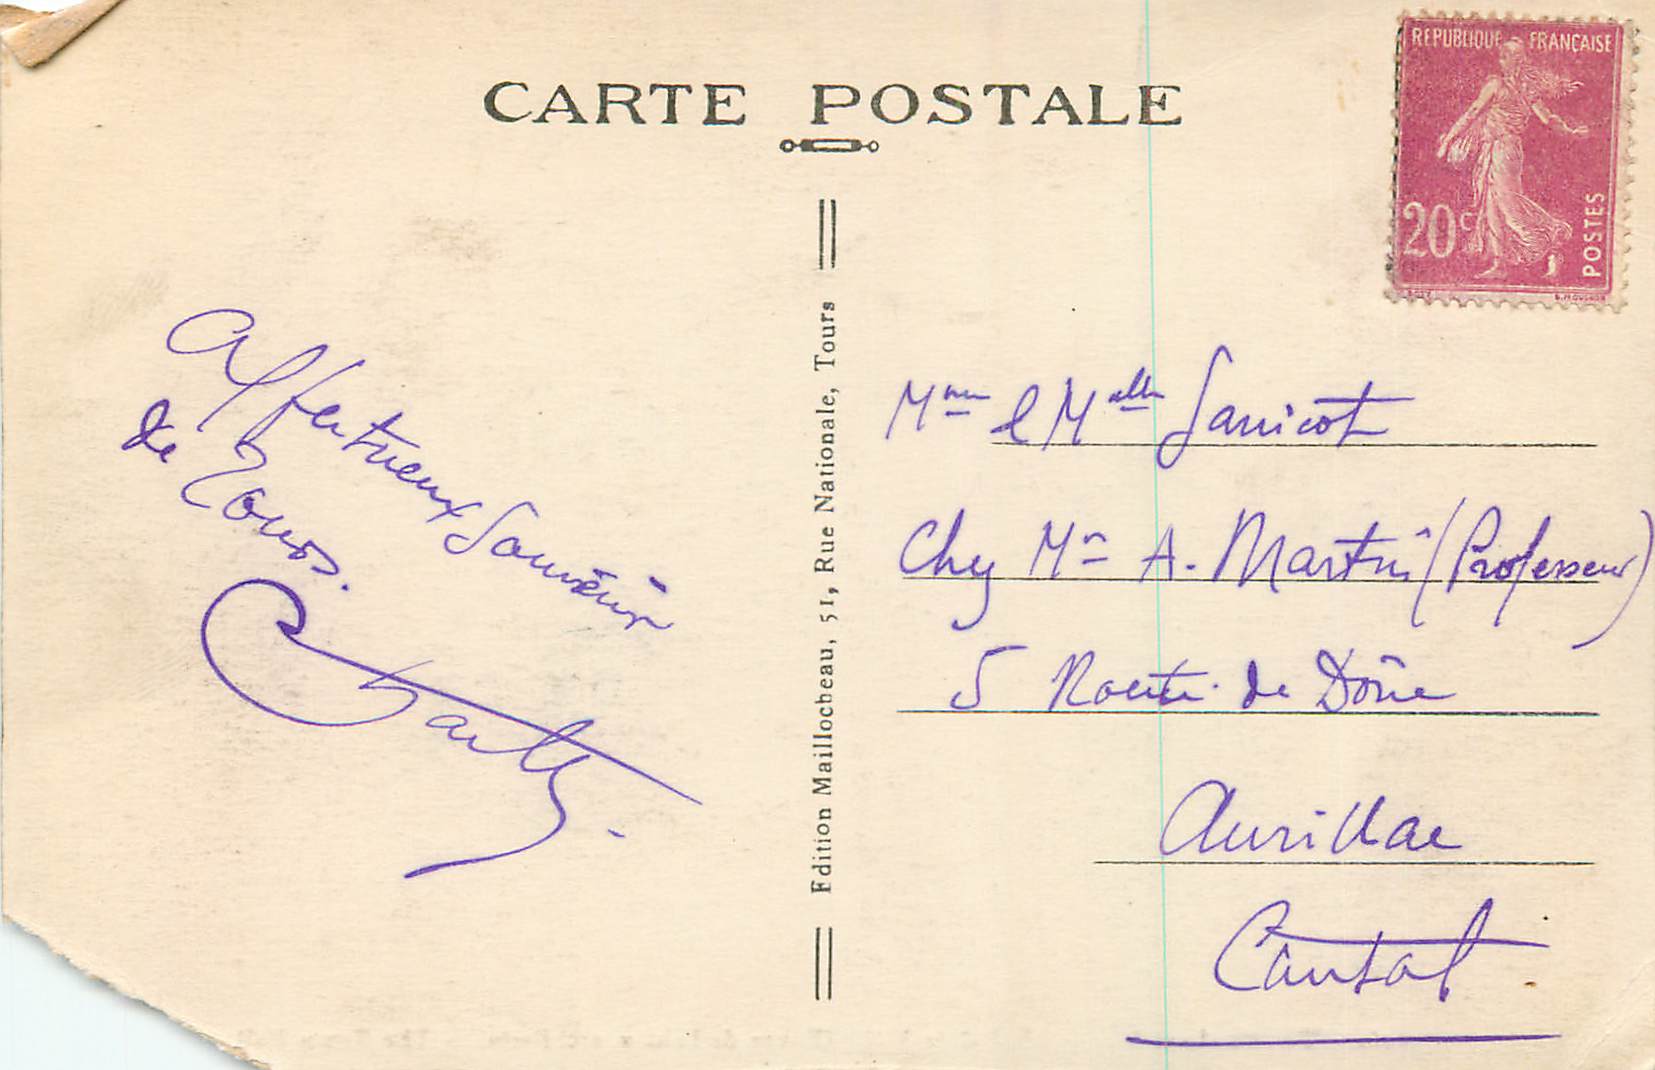 CARTE POSTALE
REPUBLIQUE FRANÇAISE
20c
POSTES
Affectueux Souvenir
de Tours.
Edition Maillocheau, 51, Rue Nationale, Tours
Mme & Melle Janicot
Chez Mr A. Martin (Professeur)
5 Route de
Aurillac
Cantal